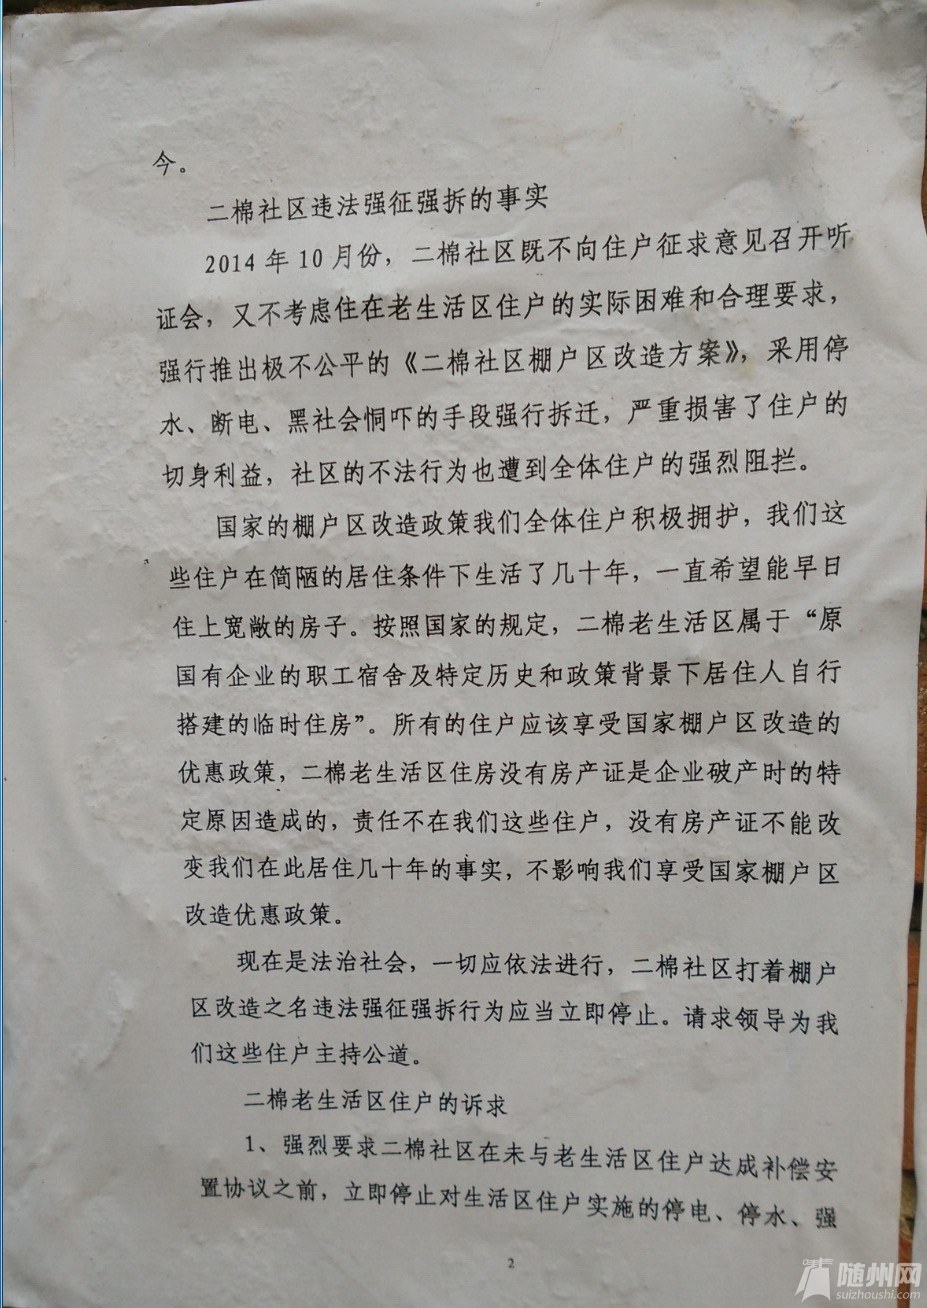 今。
二棉社区违法强征强拆的事实
2014 年 10 月份，二棉社区既不向住户征求意见召开听
证会，又不考虑住在老生活区住户的实际困难和合理要求，
强行推出极不公平的《二棉社区棚户区改造方案》，采用停
水、断电、黑社会恫吓的手段强行拆迁，严重损害了住户的
切身利益，社区的不法行为也遭到全体住户的强烈阻拦。
国家的棚户区改造政策我们全体住户积极拥护，我们这
些住户在简陋的居住条件下生活了几十年，一直希望能早日
住上宽敞的房子。按照国家的规定，二棉老生活区属于“原
国有企业的职工宿舍及特定历史和政策背景下居住人自行
搭建的临时住房”。所有的住户应该享受国家棚户区改造的
优惠政策，二棉老生活区住房没有房产证是企业破产时的特
定原因造成的，责任不在我们这些住户，没有房产证不能改
变我们在此居住几十年的事实，不影响我们享受国家棚户区
改造优惠政策。
现在是法治社会，一切应依法进行，二棉社区打着棚户
区改造之名违法强征强拆行为应当立即停止。请求领导为我
们这些住户主持公道。
二棉老生活区住户的诉求
1、强烈要求二棉社区在未与老生活区住户达成补偿安
置协议之前，立即停止对生活区住户实施的停电、停水、强
2
随州网
suizhoushi.com